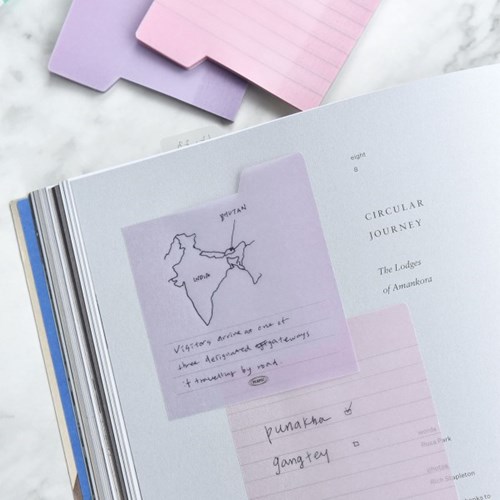 eight
8
CIRCULAR
JOURNEY
The Lodges
of Amankora
BHUTAN
INDIA
Visitors arrive at one of
three designated gateways
if travelling by road.
punakha
gangtey
Park
Stapleton